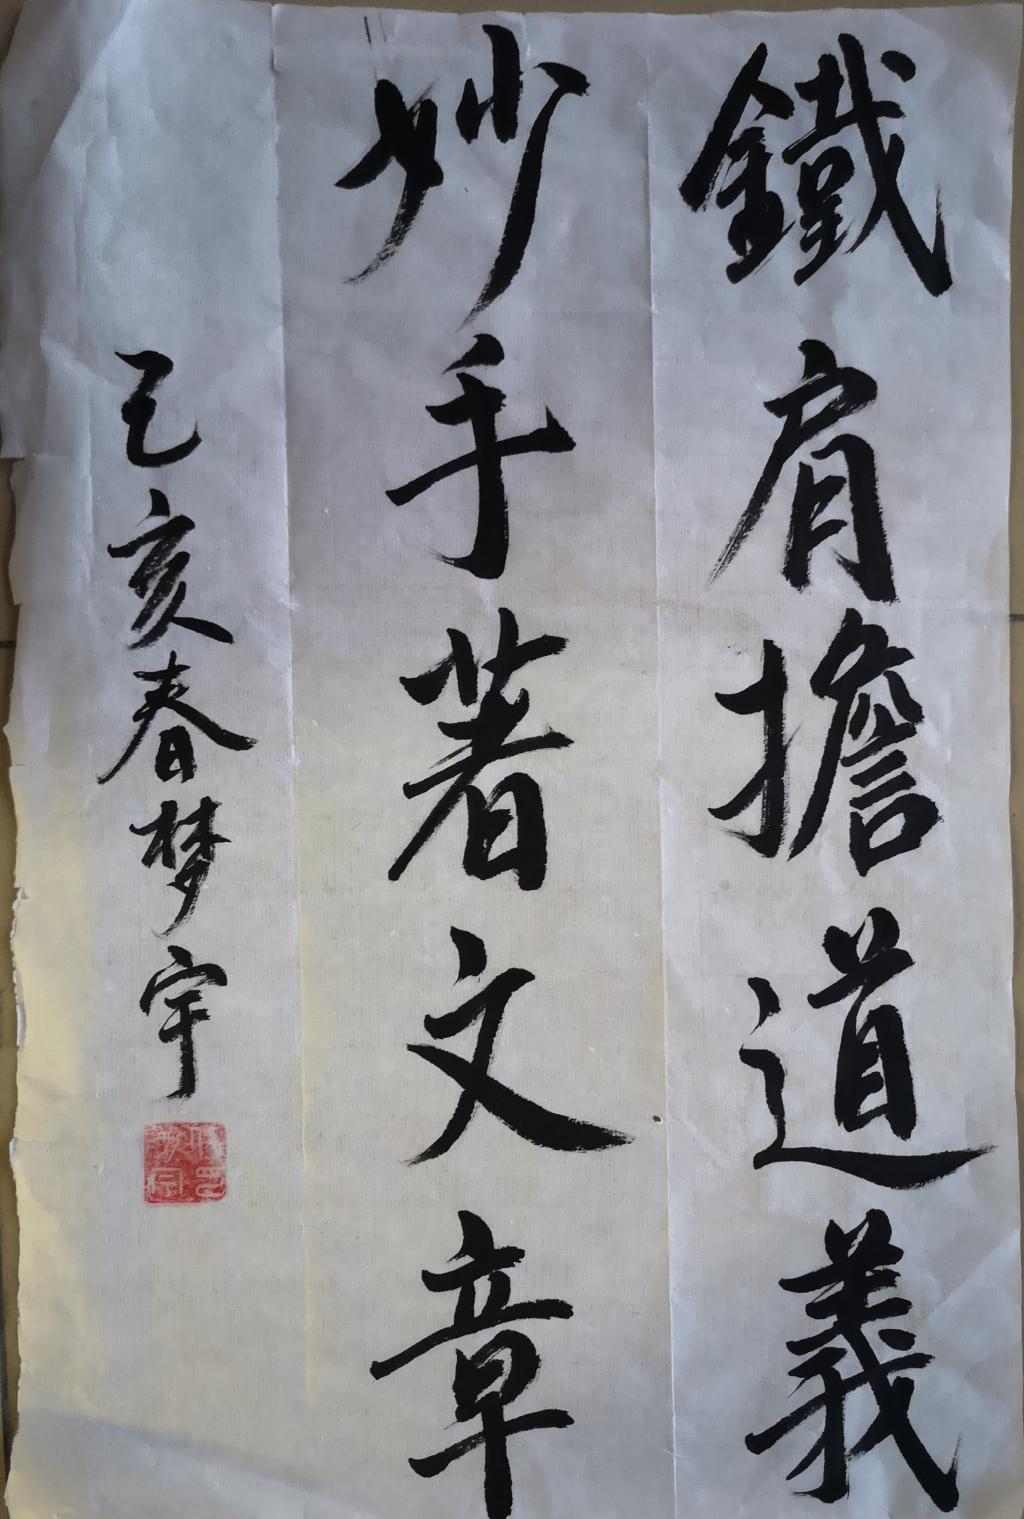 鐵肩擔道義
妙手著文章
己亥春梦宇